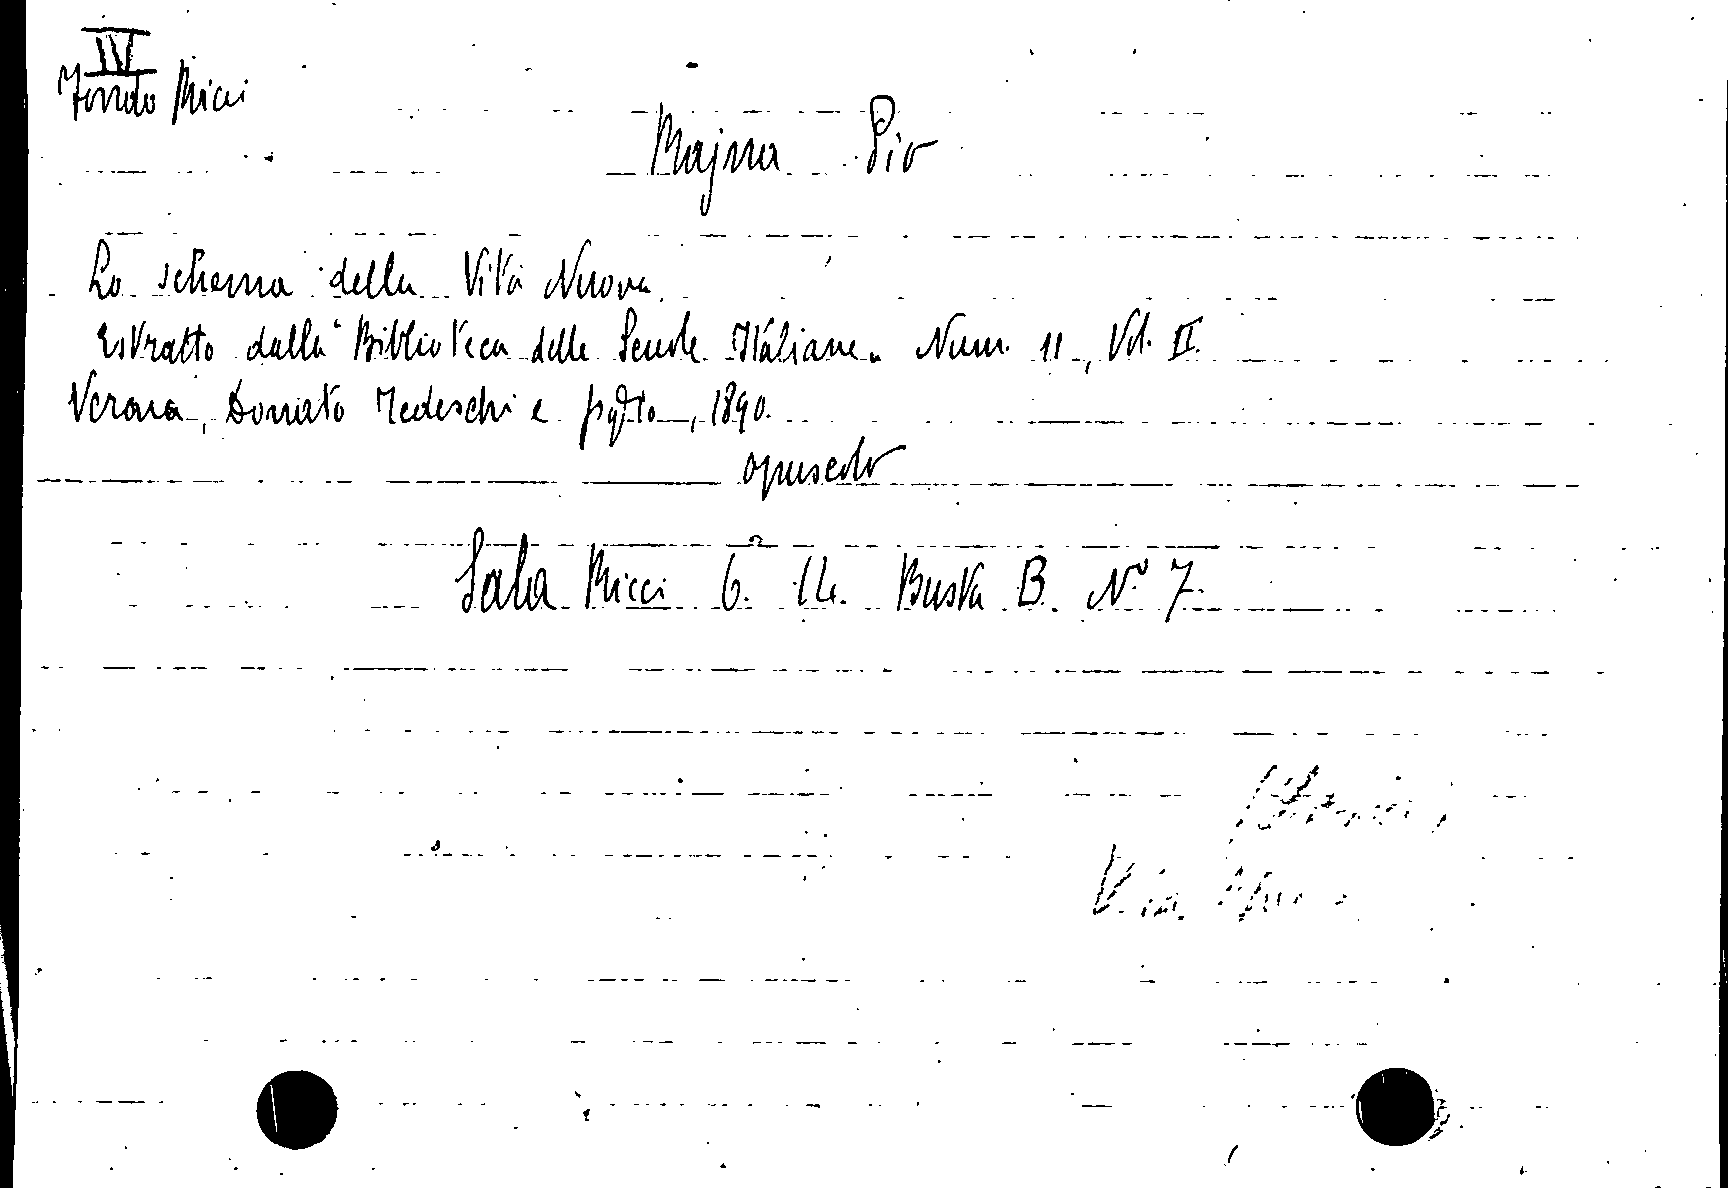 IV
Fondo Ricci
Rajna Pio
Lo schema della Vita Nuova.
Estratto dalla "Biblioteca delle Scuole Italiane" Num. 11, Vol. II.
Verona, Donato Tedeschi e figlio, 1890.
opuscolo
Sala Ricci 6. Busta B. N° 7.
Via